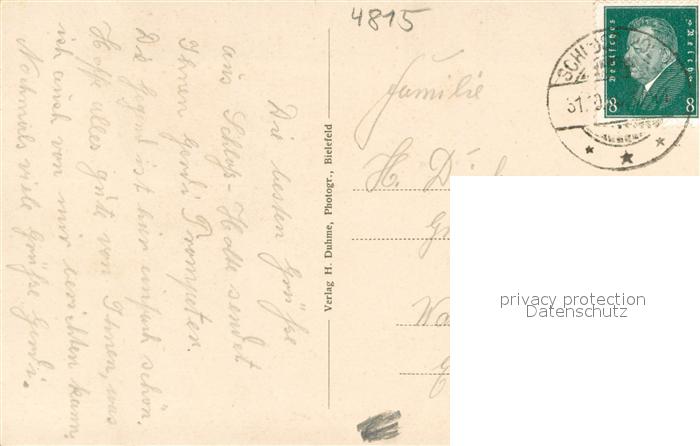 4815
Die besten Grüße
aus Schloß-Holte sendet
Ihnen Gerdi Trompeter.
Die Gegend ist hier einfach schön.
Hoffe alles gute von Ihnen, was
ich auch von mir berichten kann.
Nochmals viele Grüße Gerdi.
Verlag H. Duhme, Photogr., Bielefeld
Familie
H.
Deutsches Reich
8 8
privacy protection
Datenschutz